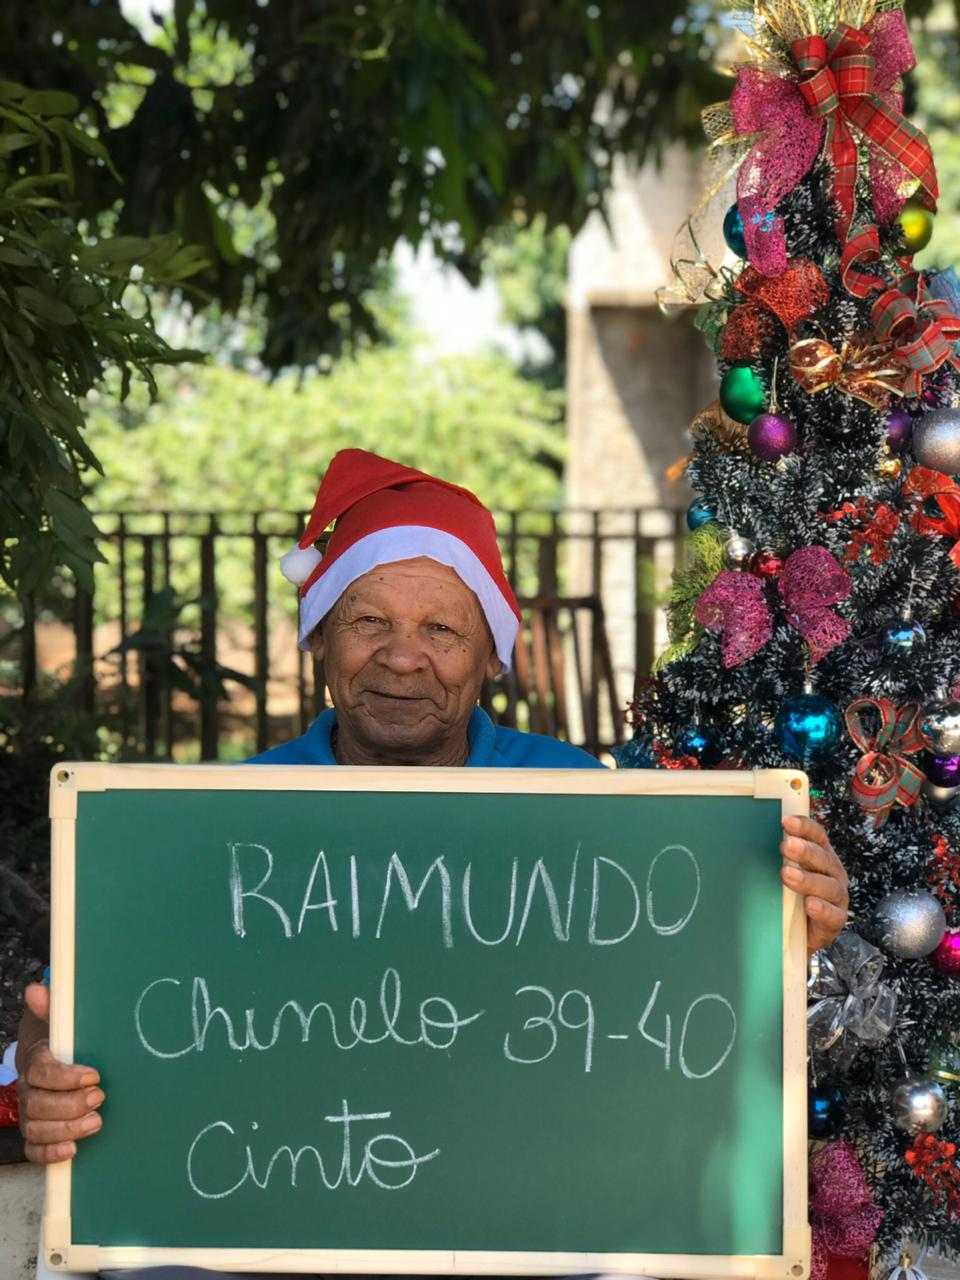 RAIMUNDO
Chinelo 39-40
Cinto